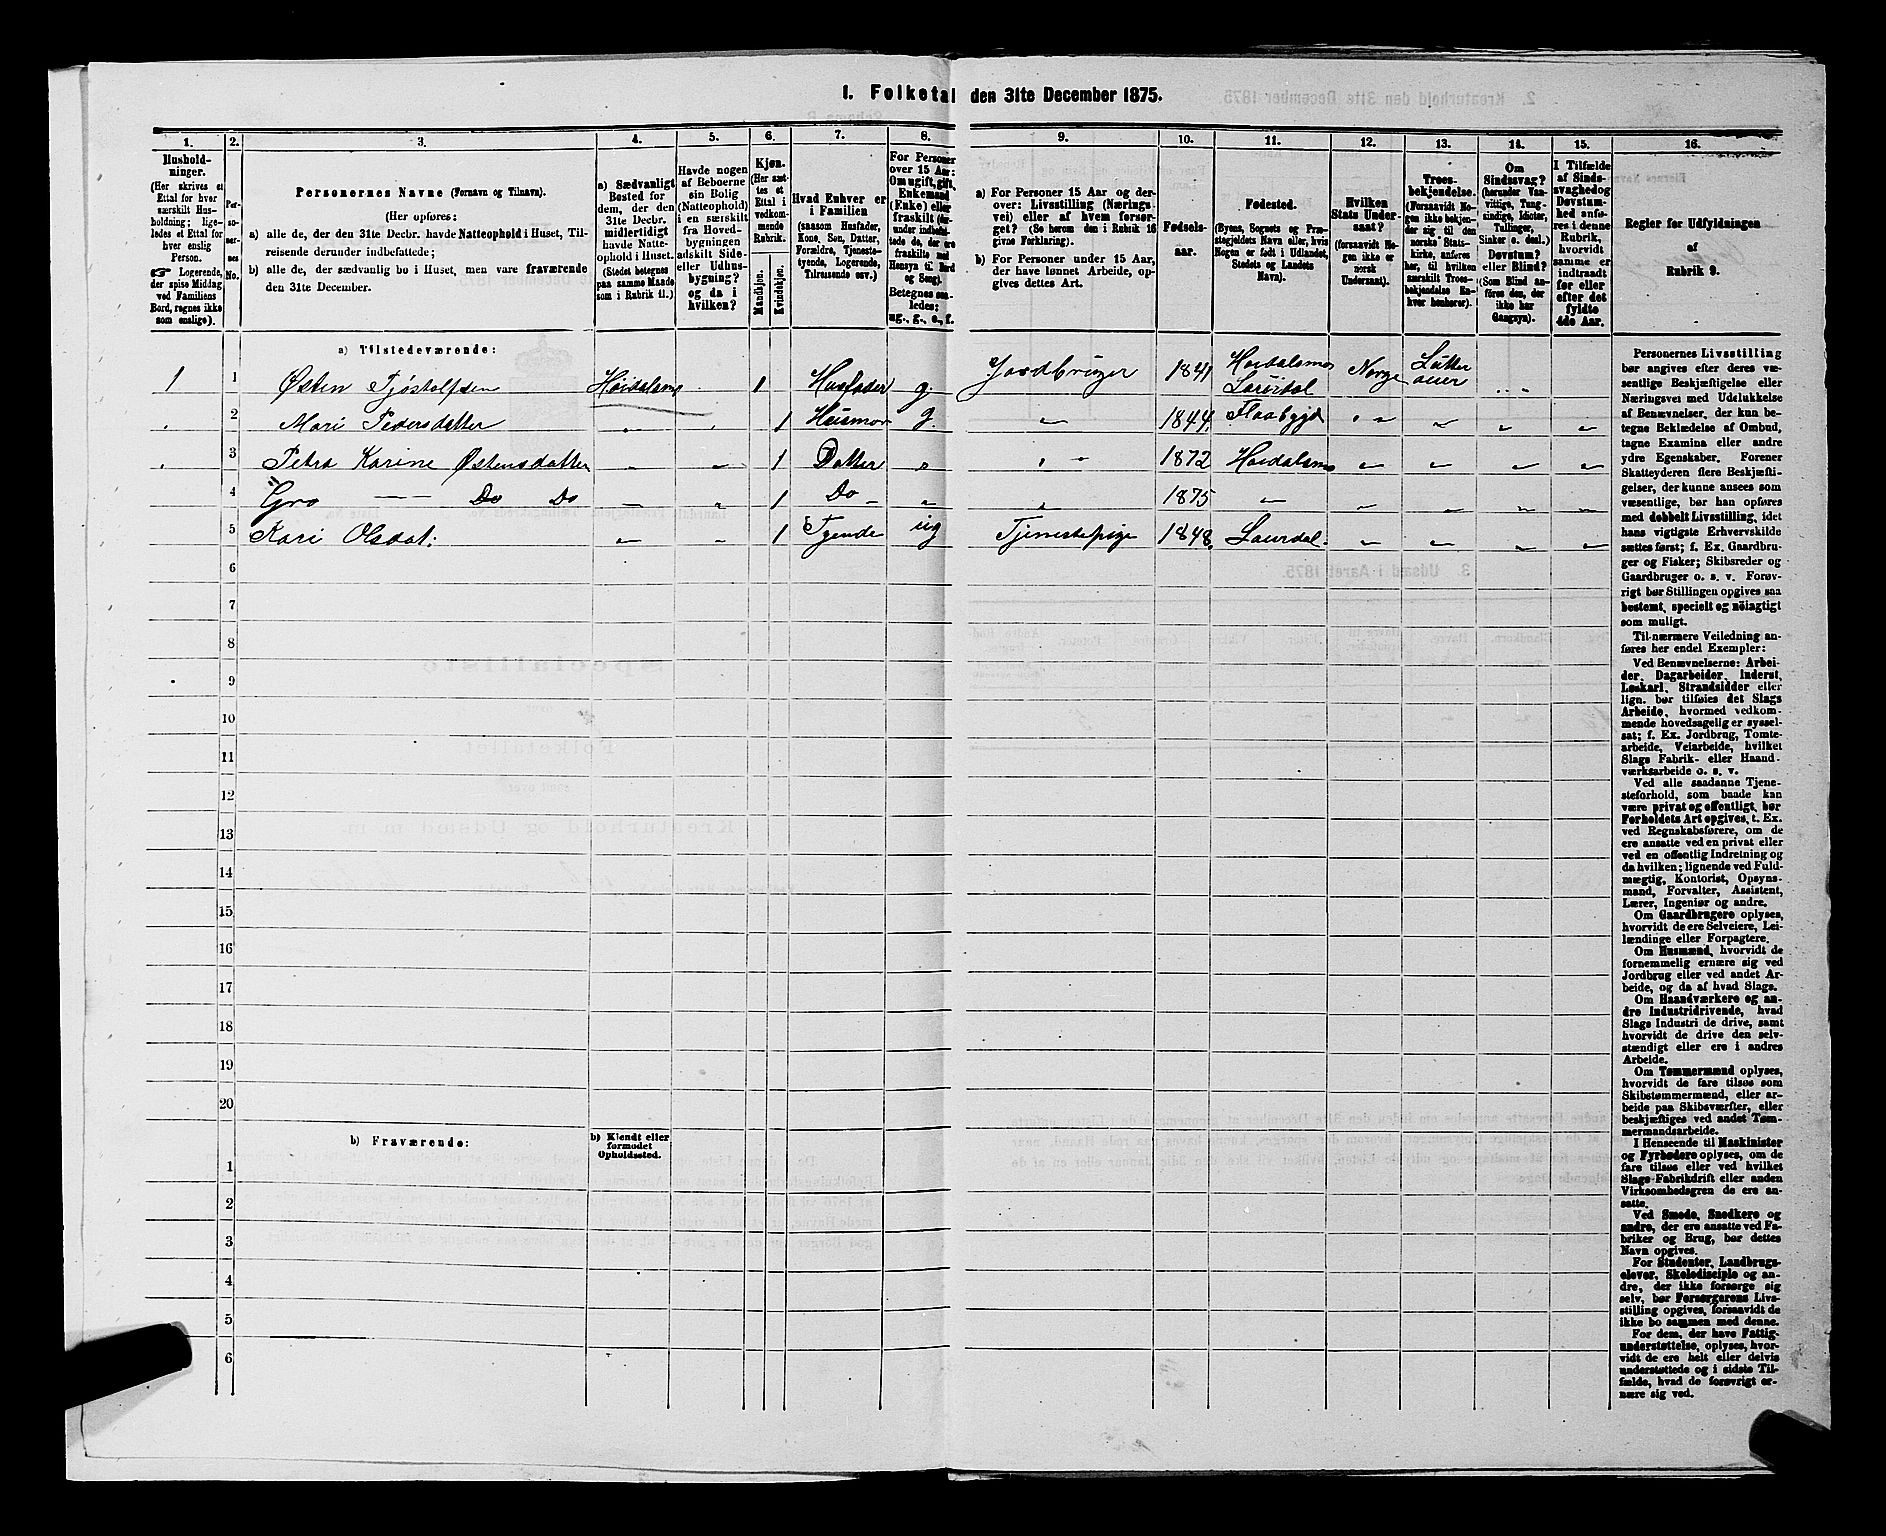 1. Folketal den 31te December 1875.
1. 2. 3. 4. 5. 6. 7. 8. 9. 10. 11. 12. 13. 14. 15. 16.
Hushold-
ninger.
(Her skrives et
Ettal for hver
særskilt Hus-
holdning; lige-
ledes et Ettal for
hver enslig
Person.
☞ Logerende,
der spise Middag
ved Familiens
Bord, regnes ikke
som enslige).
Per-
so-
ner-
nes
No.
Personernes Navne (Fornavn og Tilnavn).
(Her opføres:
a) alle de, der den 31te Decbr. havde Natteophold i Huset, Til-
reisende derunder indbefattede;
b) alle de, der sædvanlig bo i Huset, men vare fraværende
den 31te December.
a) Sædvanligt
Bosted for
dem, der den
31te Decbr.
midlertidigt
havde Natte-
ophold i Huset.
(Stedet betegnes
paa samme Maade
som i Rubrik 11.)
Havde nogen
af Beboerne
sin Bolig
(Natteophold)
i en særskilt
fra Hoved-
bygningen
adskilt Side-
eller Udhus-
bygning?
og da i
hvilken?
Kjøn.
(Her sæt-
tes et
Ettal i
vedkom-
mende
Rubrik.
Mandkjøn.
Kvindekjøn.
Hvad Enhver er
i Familien
(saasom Husfader,
Kone, Søn, Datter,
Forældre, Tjeneste-
tyende, Logerende,
Tilreisende osv.)
For Personer
over 15 Aar:
Om ugift, gift,
Enkemand
(Enke) eller
fraskilt (der-
under indbefat-
tede de, der ere
fraskilte med
Hensyn til Bord
og Seng).
Betegnes saa-
ledes:
ug., g., e., f.
a) For Personer 15 Aar og der-
over: Livsstilling (Nærings-
vei) eller af hvem forsør-
get? (Se herom den i Rubrik 16
givne Forklaring).
b) For Personer under 15 Aar,
der have lønnet Arbeide, op-
gives dettes Art.
Fødsels-
aar.
Fødested.
(Byens, Sognets og Præ-
stegjeldets Navn eller, hvis
Nogen er født i Udlandet,
Stedets og Landets
Navn).
Hvilken
Stats Under-
saat?
(forsaavidt No-
gen ikke er
norsk
Undersaat).
Troes-
bekjendelse.
(Forsaavidt No-
gen ikke bekjen-
der sig til den
norske Stats-
kirke, anføres
her, til hvilken
særskilt Troes-
bekjendelse En-
hver henhører).
Om
Sindssvag?
(herunder Van-
vittige, Tung-
sindige, Idioter,
Tullinger,
Sinker o. desl.)
Døvstum?
eller Blind?
(Som Blind an-
føres den, der
ikke har
Gangsyn).
I Tilfælde
af Sinds-
svaghed og
Døvstum-
hed anfø-
res i denne
Rubrik,
hvorvidt
samme er
indtraadt
før eller
efter det
fyldte
4de Aar.
Regler for Udfyldningen
af
Rubrik 9.
a) Tilstedeværende:
1 1 Østen Tjøstolfsen Høidalsmo 1 Husfader g Jordbruger 1841 Hoidalsmo Laurdal Norge Lutheraner
2 Mari Pedersdatter 1 Husmor g. 1844. Flaabygd
3 Petra Karine Østensdatter 1 Datter 1872 Hoidalsmo
4 Gro Do Do 1 Do 1875
5 Kari Olsdat: 1 Tyende ug Tjenestepige 1848. Laurdal.
6
7
8
9
10
11
12
13
14
15
16
17
18
19
20
b) Fraværende:
b) Kjendt eller
formodet
Opholdssted.
1
2
3
4
5
6
Personernes Livsstilling
bør angives efter deres væ-
sentlige Beskjæftigelse eller
Næringsvei med Udelukkelse
af Benævnelser, der kun be-
tegne Beklædelse af Ombud,
tagne Examina eller andre
ydre Egenskaber. Forener
Skatteyderen flere Beskjæfti-
gelser, der kunne ansees som
væsentlige, bør han opføres
med dobbelt Livsstilling, idet
hans vigtigste Erhvervskilde
sættes først; f. Ex. Gaardbru-
ger og Fisker; Skibsreder og
Gaardbruger o. s. v. Forøv-
rigt bør Stillingen opgives saa
bestemt, specielt og nøiagtigt
som muligt.
Til nærmere Veiledning an-
føres her endel Exempler:
Ved Benævnelserne: Arbei-
der, Dagarbeider, Inderst,
Løskarl, Strandsidder eller
lign. bør tilføies det Slags
Arbeide, hvormed vedkom-
mende hovedsagelig er syssel-
sat; f. Ex. Jordbrug, Tomte-
arbeide, Veiarbeide, hvilket
Slags Fabrik- eller Haand-
værksarbeide o. s. v.
Ved alle saadanne Tjene-
steforhold, som baade kan
være privat og offentligt, bør
Forholdets Art opgives, t. Ex.
ved Regnskabsførere, om de
ere ansatte ved en privat eller
ved en offentlig Indretning og
da hvilken; lignende ved Fuld-
mægtig, Kontorist, Opsyns-
mand, Forvalter, Assistent,
Lærer, Ingeniør og andre.
Om Gaardbrugere oplyses,
hvorvidt de ere Selveiere, Lei-
lændinge eller Forpagtere.
Om Husmænd, hvorvidt de
fornemmelig ernære sig ved
Jordbrug eller ved andet Ar-
beide, og da af hvad Slags.
Om Haandværkere og an-
dre Industridrivende, hvad
Slags Industri de drive, samt
hvorvidt de drive den selv-
stændigt eller ere i andres
Arbeide.
Om Tømmermænd oplyses,
hvorvidt de fare tilsøs som
Skibstømmermænd, eller ar-
beide paa Skibsværfter, eller
beskjæftiges ved andet Tøm-
mermandsarbeide.
I Henseende til Maskinister
og Fyrbødere oplyses, om de
fare tilsøs eller ved hvilket
Slags Fabrikdrift eller anden
Virksomhedsgren de ere an-
satte.
Ved Smede, Snedkere og
andre, der ere ansatte ved Fa-
briker og Brug, bør dettes
Navn opgives.
For Studenter, Landbrugs-
elever, Skoledisciple og an-
dre, der ikke forsørge sig
selv, bør Forsørgerens Livs-
stilling opgives, forsaavidt de
ikke bo sammen med denne.
For dem, der have Fattig-
understøttelse, oplyses, hvor-
vidt de ere helt eller delvis
understøttede og i sidste Til-
fælde, hvad de forøvrigt er-
nære sig ved.